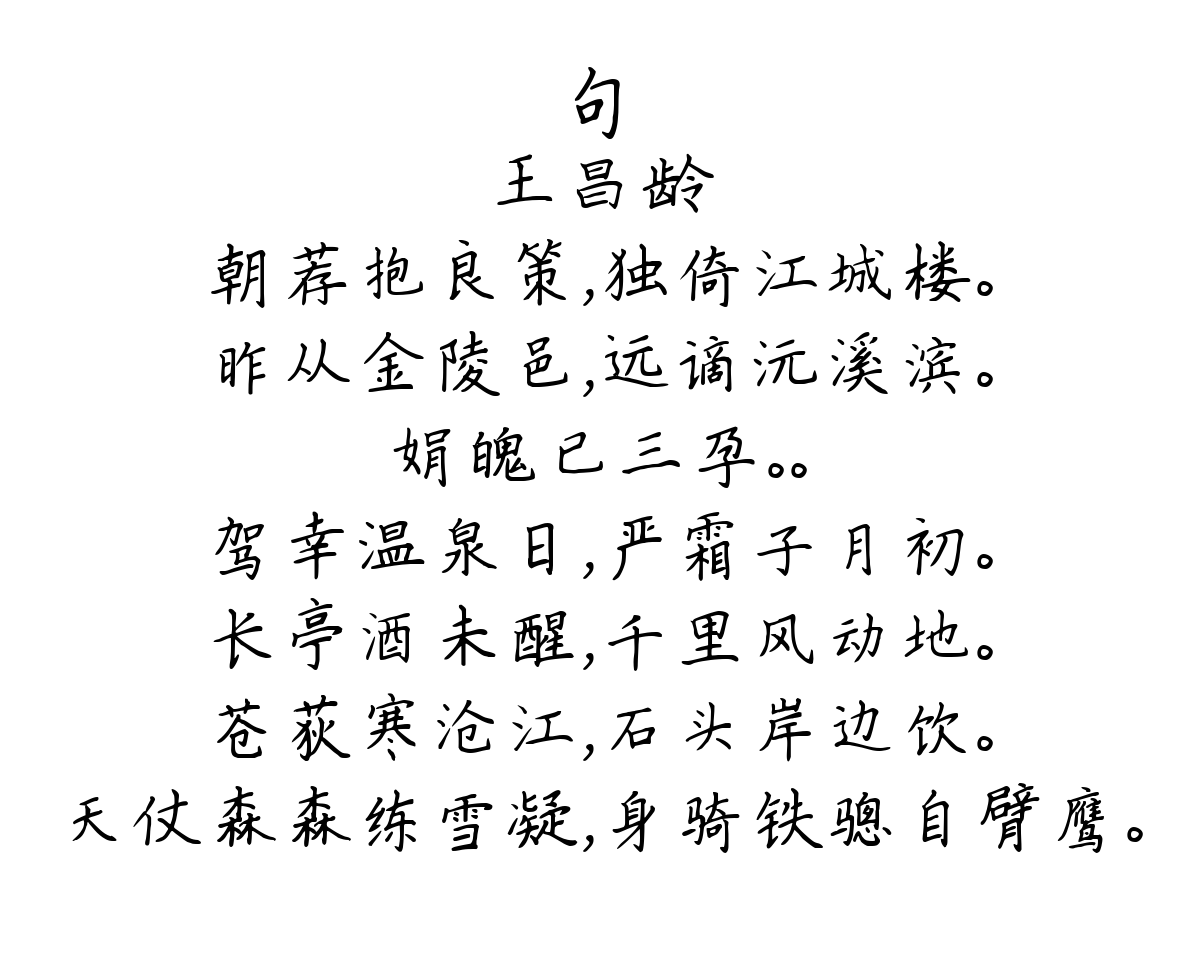 句
王昌龄
朝荐抱良策,独倚江城楼。
昨从金陵邑,远谪沅溪滨。
娟魄已三孕。。
驾幸温泉日,严霜子月初。
长亭酒未醒,千里风动地。
苍荻寒沧江,石头岸边饮。
天仗森森练雪凝,身骑铁骢自臂鹰。